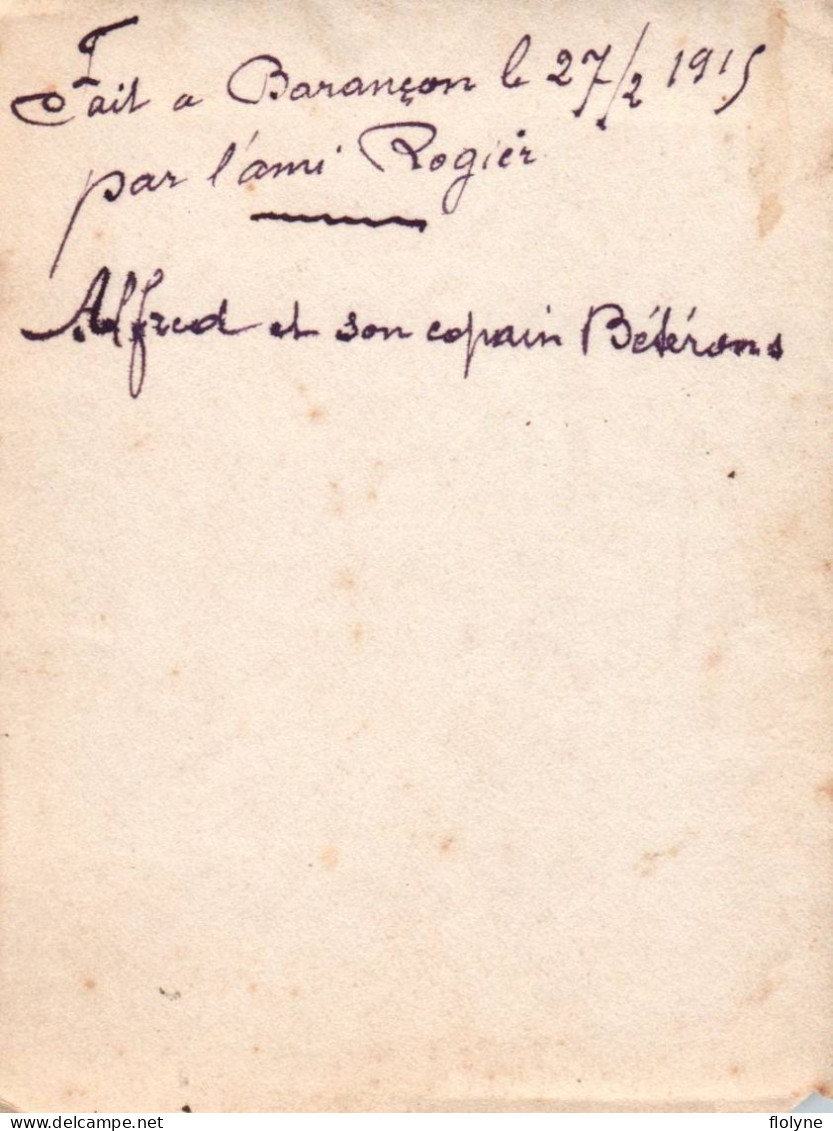 Fait a Barançon le 27/2 1915
par l'ami Rogier
Alfred et son copain Bétérons
flolyne